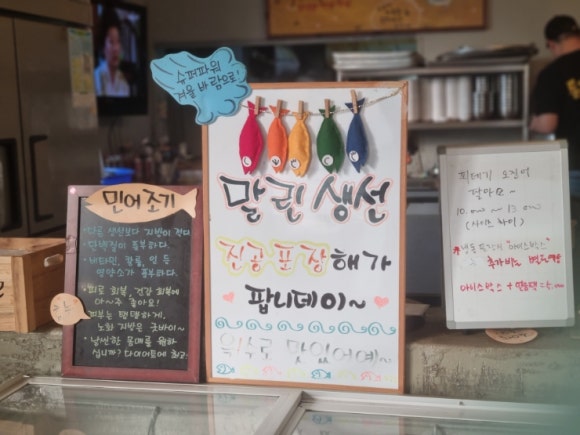 슈퍼파워
겨울 바람으로!
말린 생선
진공포장해가
팝니데이~
억수로 맛있어예~
민어조기
• 다른 생선보다 지방이 적다
• 단백질이 풍부하다.
• 비타민, 칼륨, 인 등
영양소가 풍부하다.
• 피로 회복, 건강 회복에
다~주 좋아요!
피부는 탱탱하게.
노화 지방은 굿바이~
• 날씬한 몸매를 원하
십니까? 다이어트에 최고
피데기 오징어
달아요~
(사이즈 차이.)